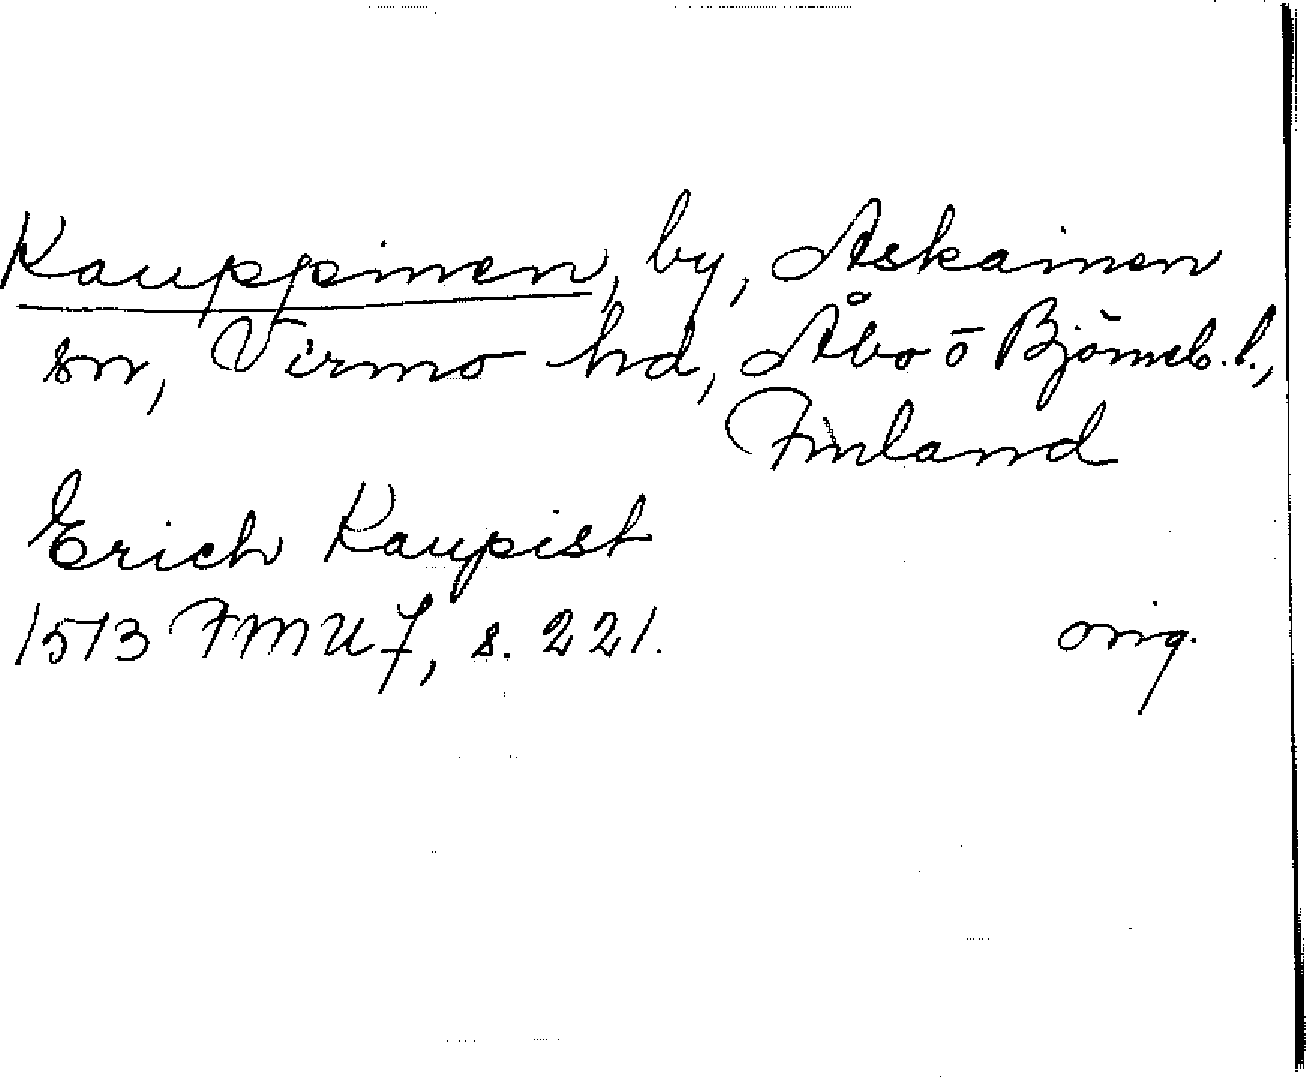 Kauppinen, by, Askainen
sn, Virmo hd, Åbo o Björneb. l.,
Finland
Erich Kaupist
1513 FMU 7, s. 221.
orig.